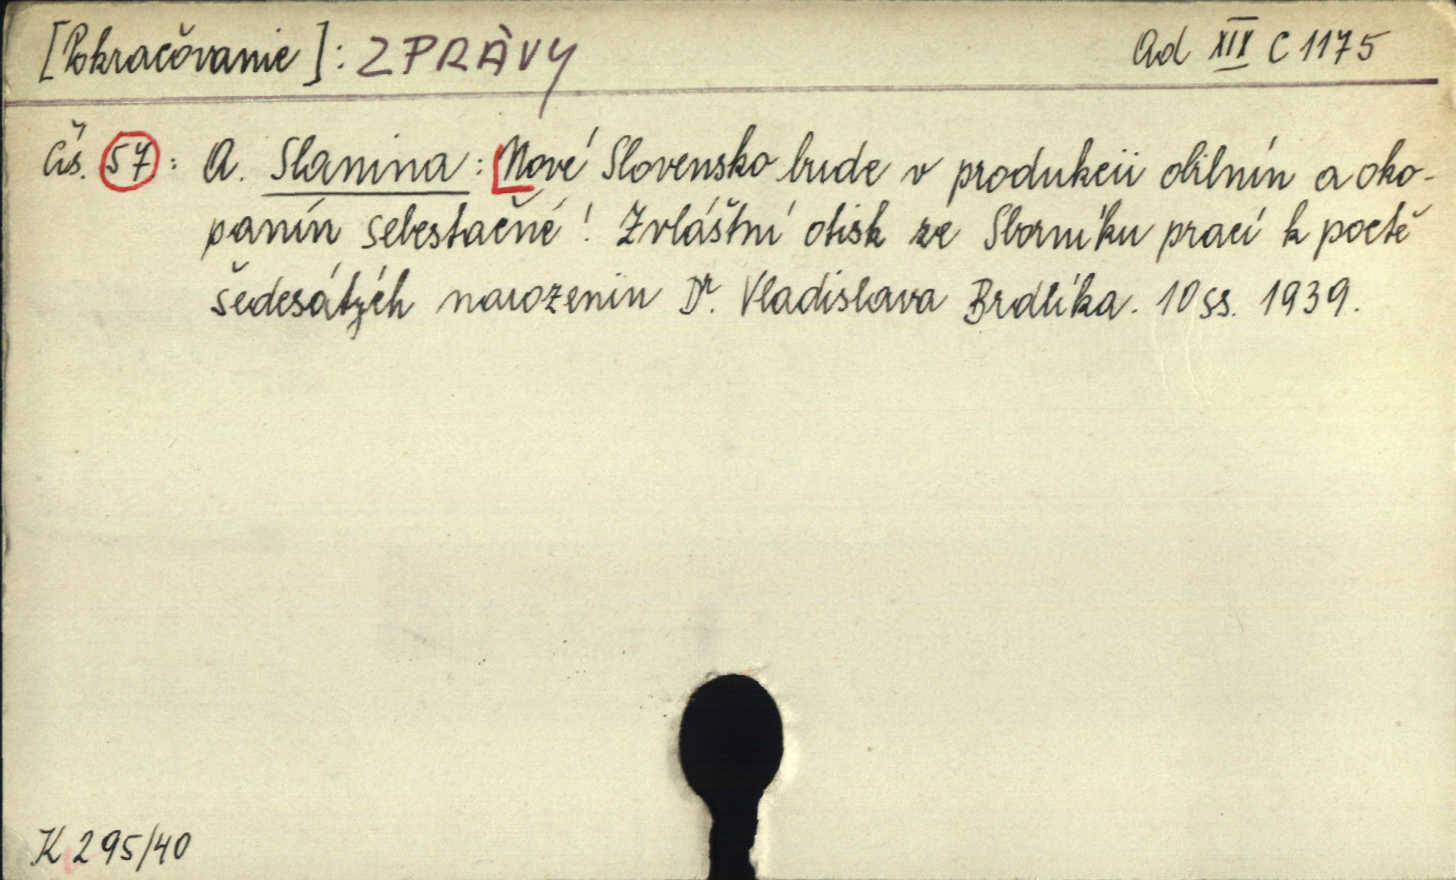 [Pokračovanie]: ZPRÁVY Ad XIX C 1175
Čís. 57: A. Slanina: Nové Slovensko bude v produkcii obilnín a oko-
panín sebestačné! Zvláštní otisk ze Sborníku prací k poctě
šedesátých narozenin Dr. Vladislava Brdlíka. 10 ss. 1939.
K 295/40